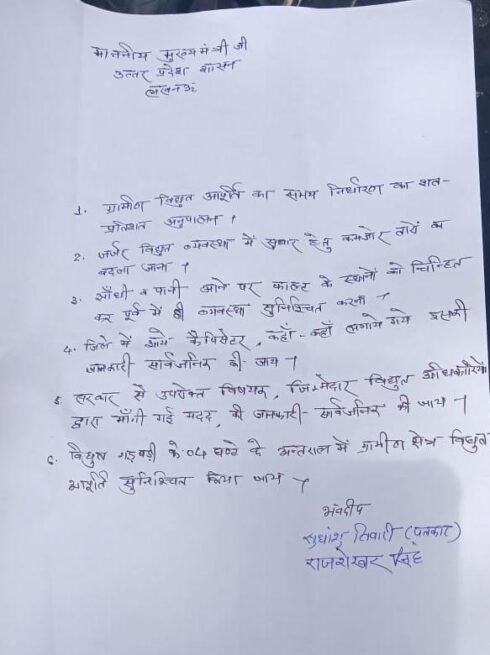 माननीय मुख्यमंत्री जी
उत्तर प्रदेश शासन
लखनऊ
1. ग्रामीण विद्युत आपूर्ति का समय निर्धारण का शत-
प्रतिशत अनुपालन ।
2. जर्जर विद्युत व्यवस्था में सुधार हेतु कमजोर तारों का
बदला जाना ।
3. आँधी व पानी आने पर फाल्ट के स्थानों को चिन्हित
कर पूर्व में ही व्यवस्था सुनिश्चित करना ।
4. जिले में आये कैपिसेटर, कहाँ-कहाँ लगाये गये इसकी
जानकारी सार्वजनिक की जाय ।
5 सरकार से उपरोक्त विषयक, जिम्मेदार विद्युत अधिकारियों
द्वारा माँगी गई मदद, की जानकारी सार्वजनिक की जाय ।
6. विद्युत गड़बड़ी के 04 घण्टे के अन्तराल में ग्रामीण क्षेत्र विद्युत
आपूर्ति सुनिश्चित किया जाय ।
भवदीय
सुधांशु तिवारी (पत्रकार)
राजशेखर सिंह